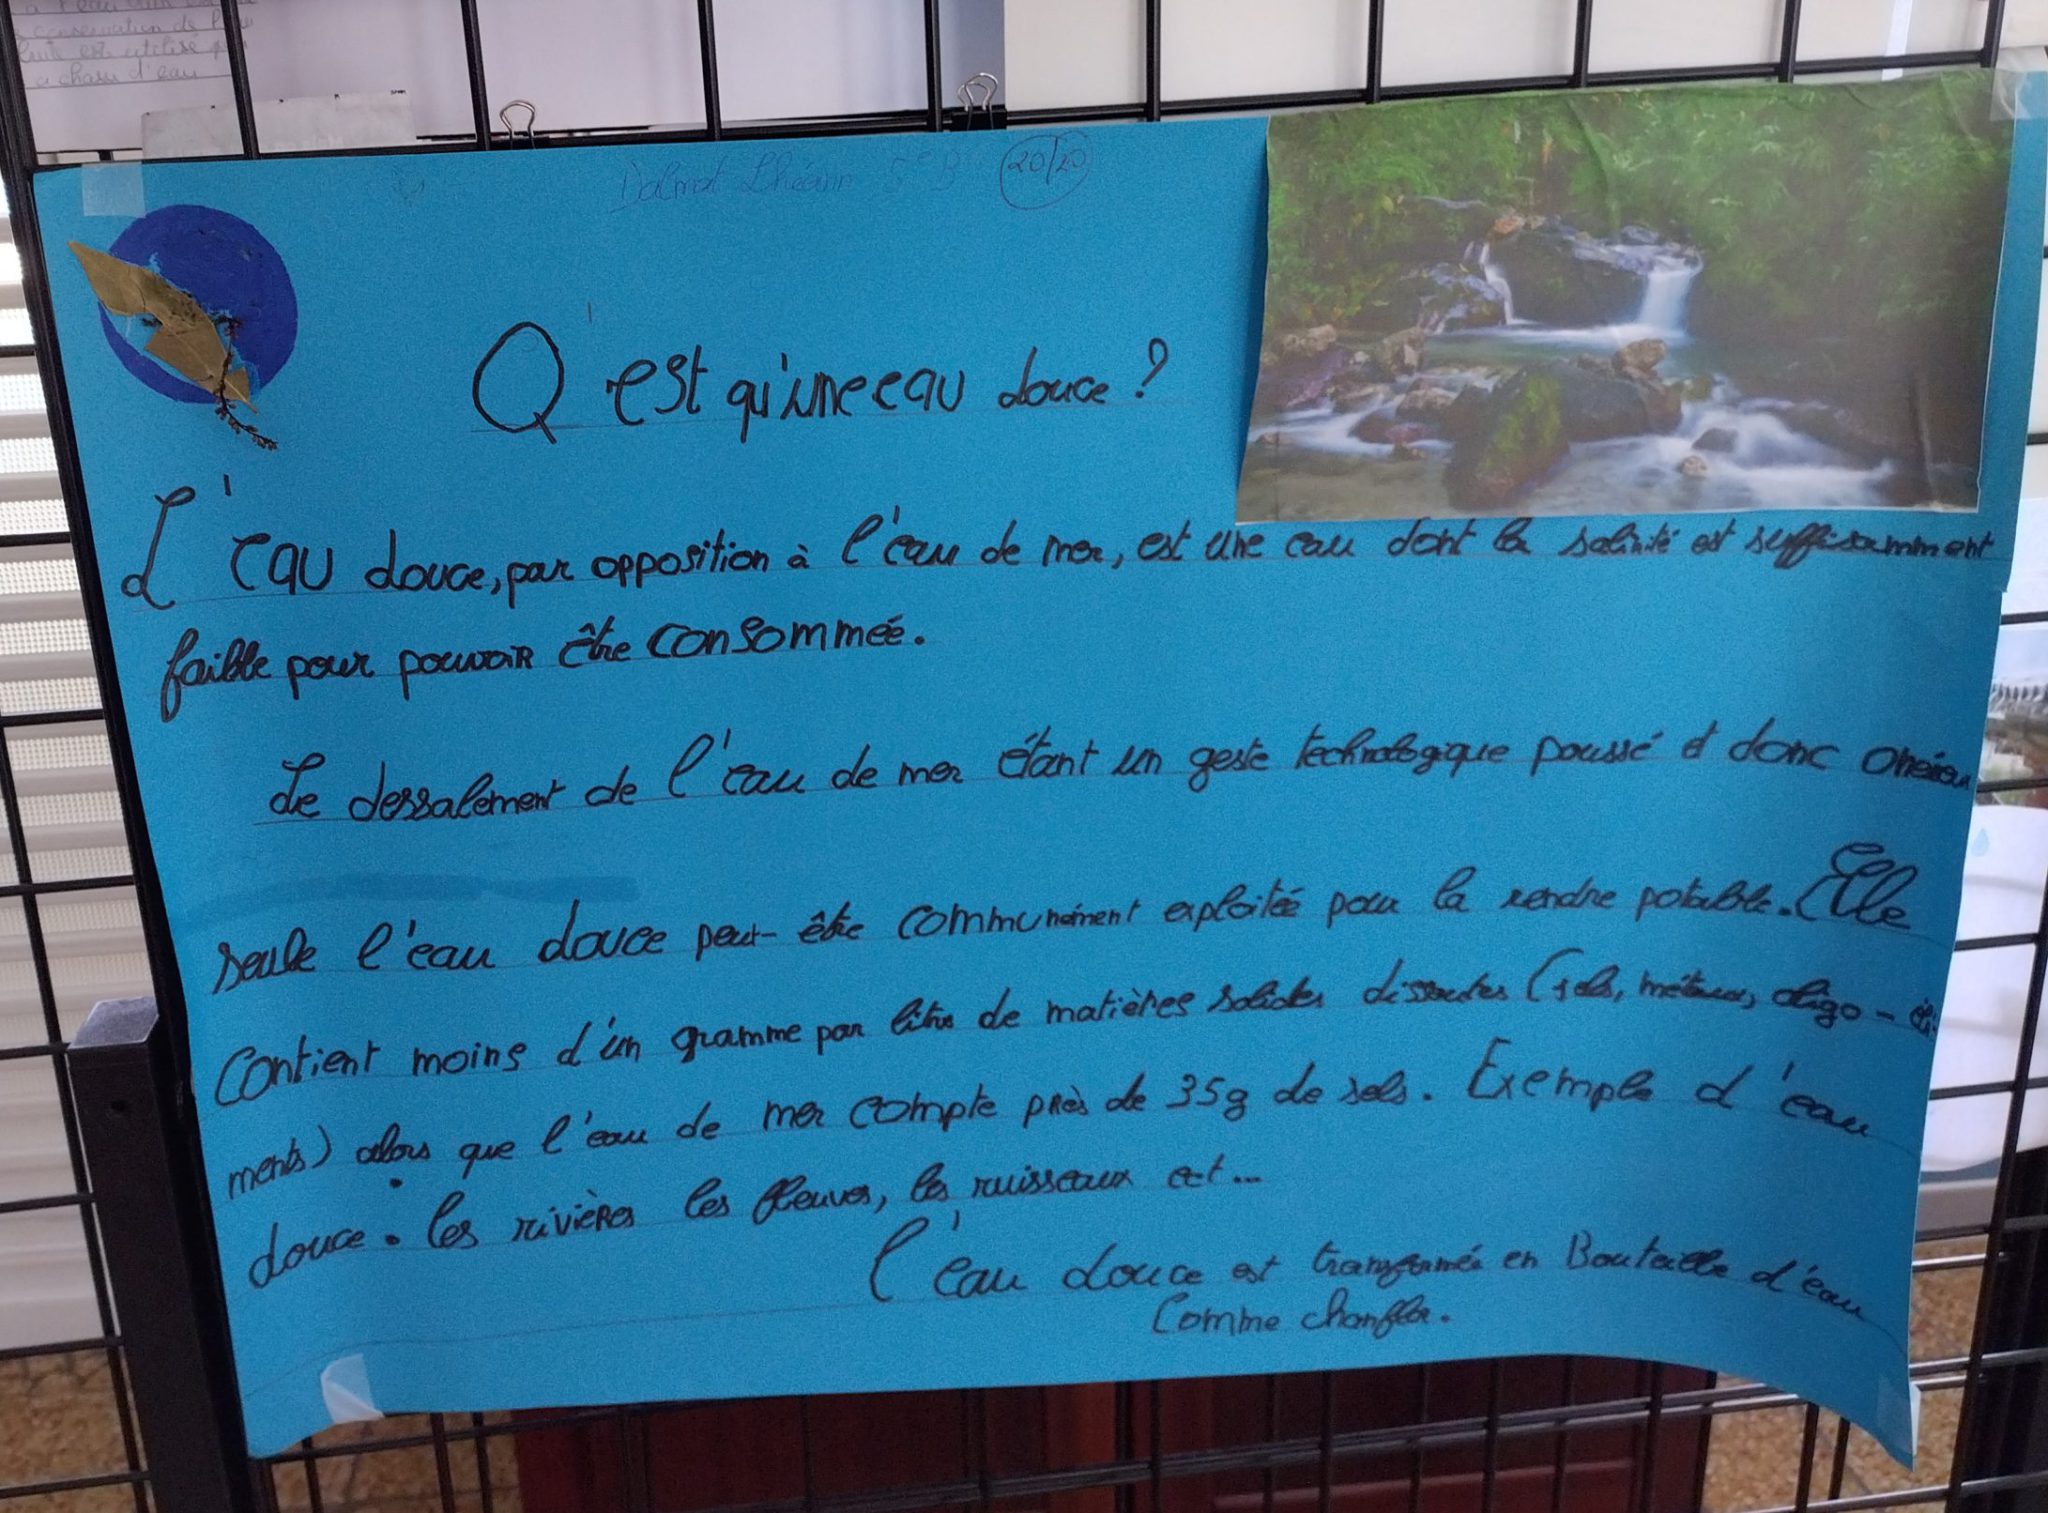 conservation de l'eau
est utilisé
a chasse d'eau
Dalmat Lhéann 5e B 20/20
Q'est qu'une eau douce ?
L'eau douce, par opposition à l'eau de mer, est une eau dont la salinité est suffisamment
faible pour pouvoir être consommée.
Le dessalement de l'eau de mer étant un geste technologique poussé et donc onéreux
seule l'eau douce peut-être communément exploitée pour la rendre potable. Elle
contient moins d'un gramme par litre de matières solides dissoutes (sels, métaux, oligo-élé
ments) alors que l'eau de mer compte près de 35g de sels. Exemple d'eau
douce. les rivières les fleuves, les ruisseaux ect...
l'eau douce est transformée en Bouteille d'eau
Comme chanflor.